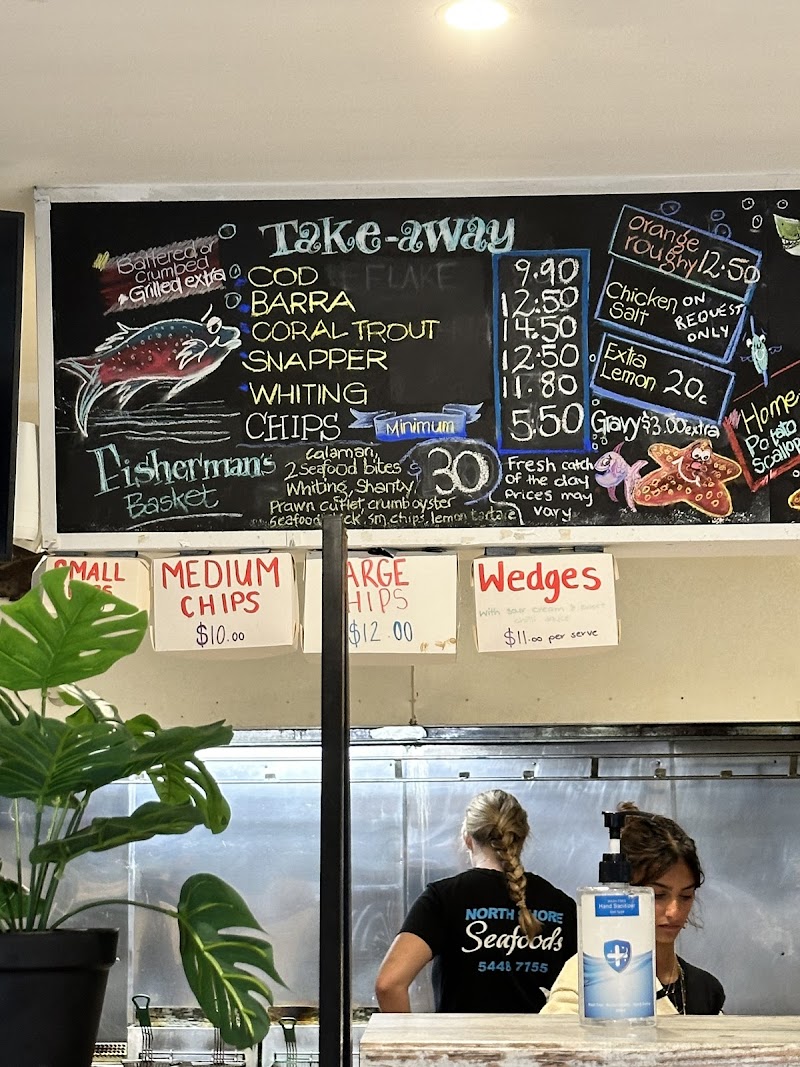 Take-away
Battered or
Crumbed
Grilled extra
COD 9.90
BARRA 12:50
CORAL TROUT 14.50
SNAPPER 12:50
WHITING 11.80
CHIPS Minimum 5.50
FLAKE
orange
roughy 12:50
Chicken ON
Salt REQUEST
ONLY
Extra
Lemon 20c
Gravy $3.00 extra
Home
Potato
Scallop
Fisherman's
Basket
Calamari,
2 seafood bites
Whiting, Shanty
Prawn cutlet, crumb oyster
Seafood stick, sm. chips, lemon tartare
$30
Fresh catch
of the day
Prices may
vary
SMALL
MEDIUM
CHIPS
$10.00
LARGE
CHIPS
$12.00
Wedges
with sour cream & sweet
$11.00 per serve
NORTH SHORE
Seafoods
5448 7755
Hand Sanitizer